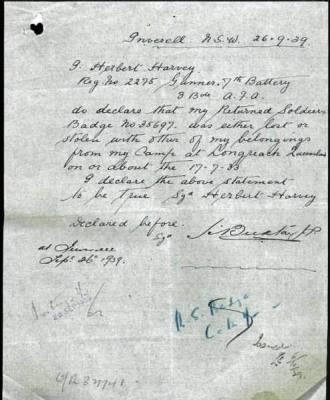 Inverell N.S.W. 26-9-39
I Herbert Harvey
Reg No 2275 Gunner. 7th Battery
3 Bde A.F.A.
do declare that my Returned Soldiers
Badge No 35697. was either lost or
stolen with other of my belongings
from my Camp at Longreach
on or about the 17-7-33
I declare the above statement
to be true Sgd Herbert Harvey
Declared before.
Sgd
JP
at Inverell
Sept 26th 1939.
R. S. Badge
Issued